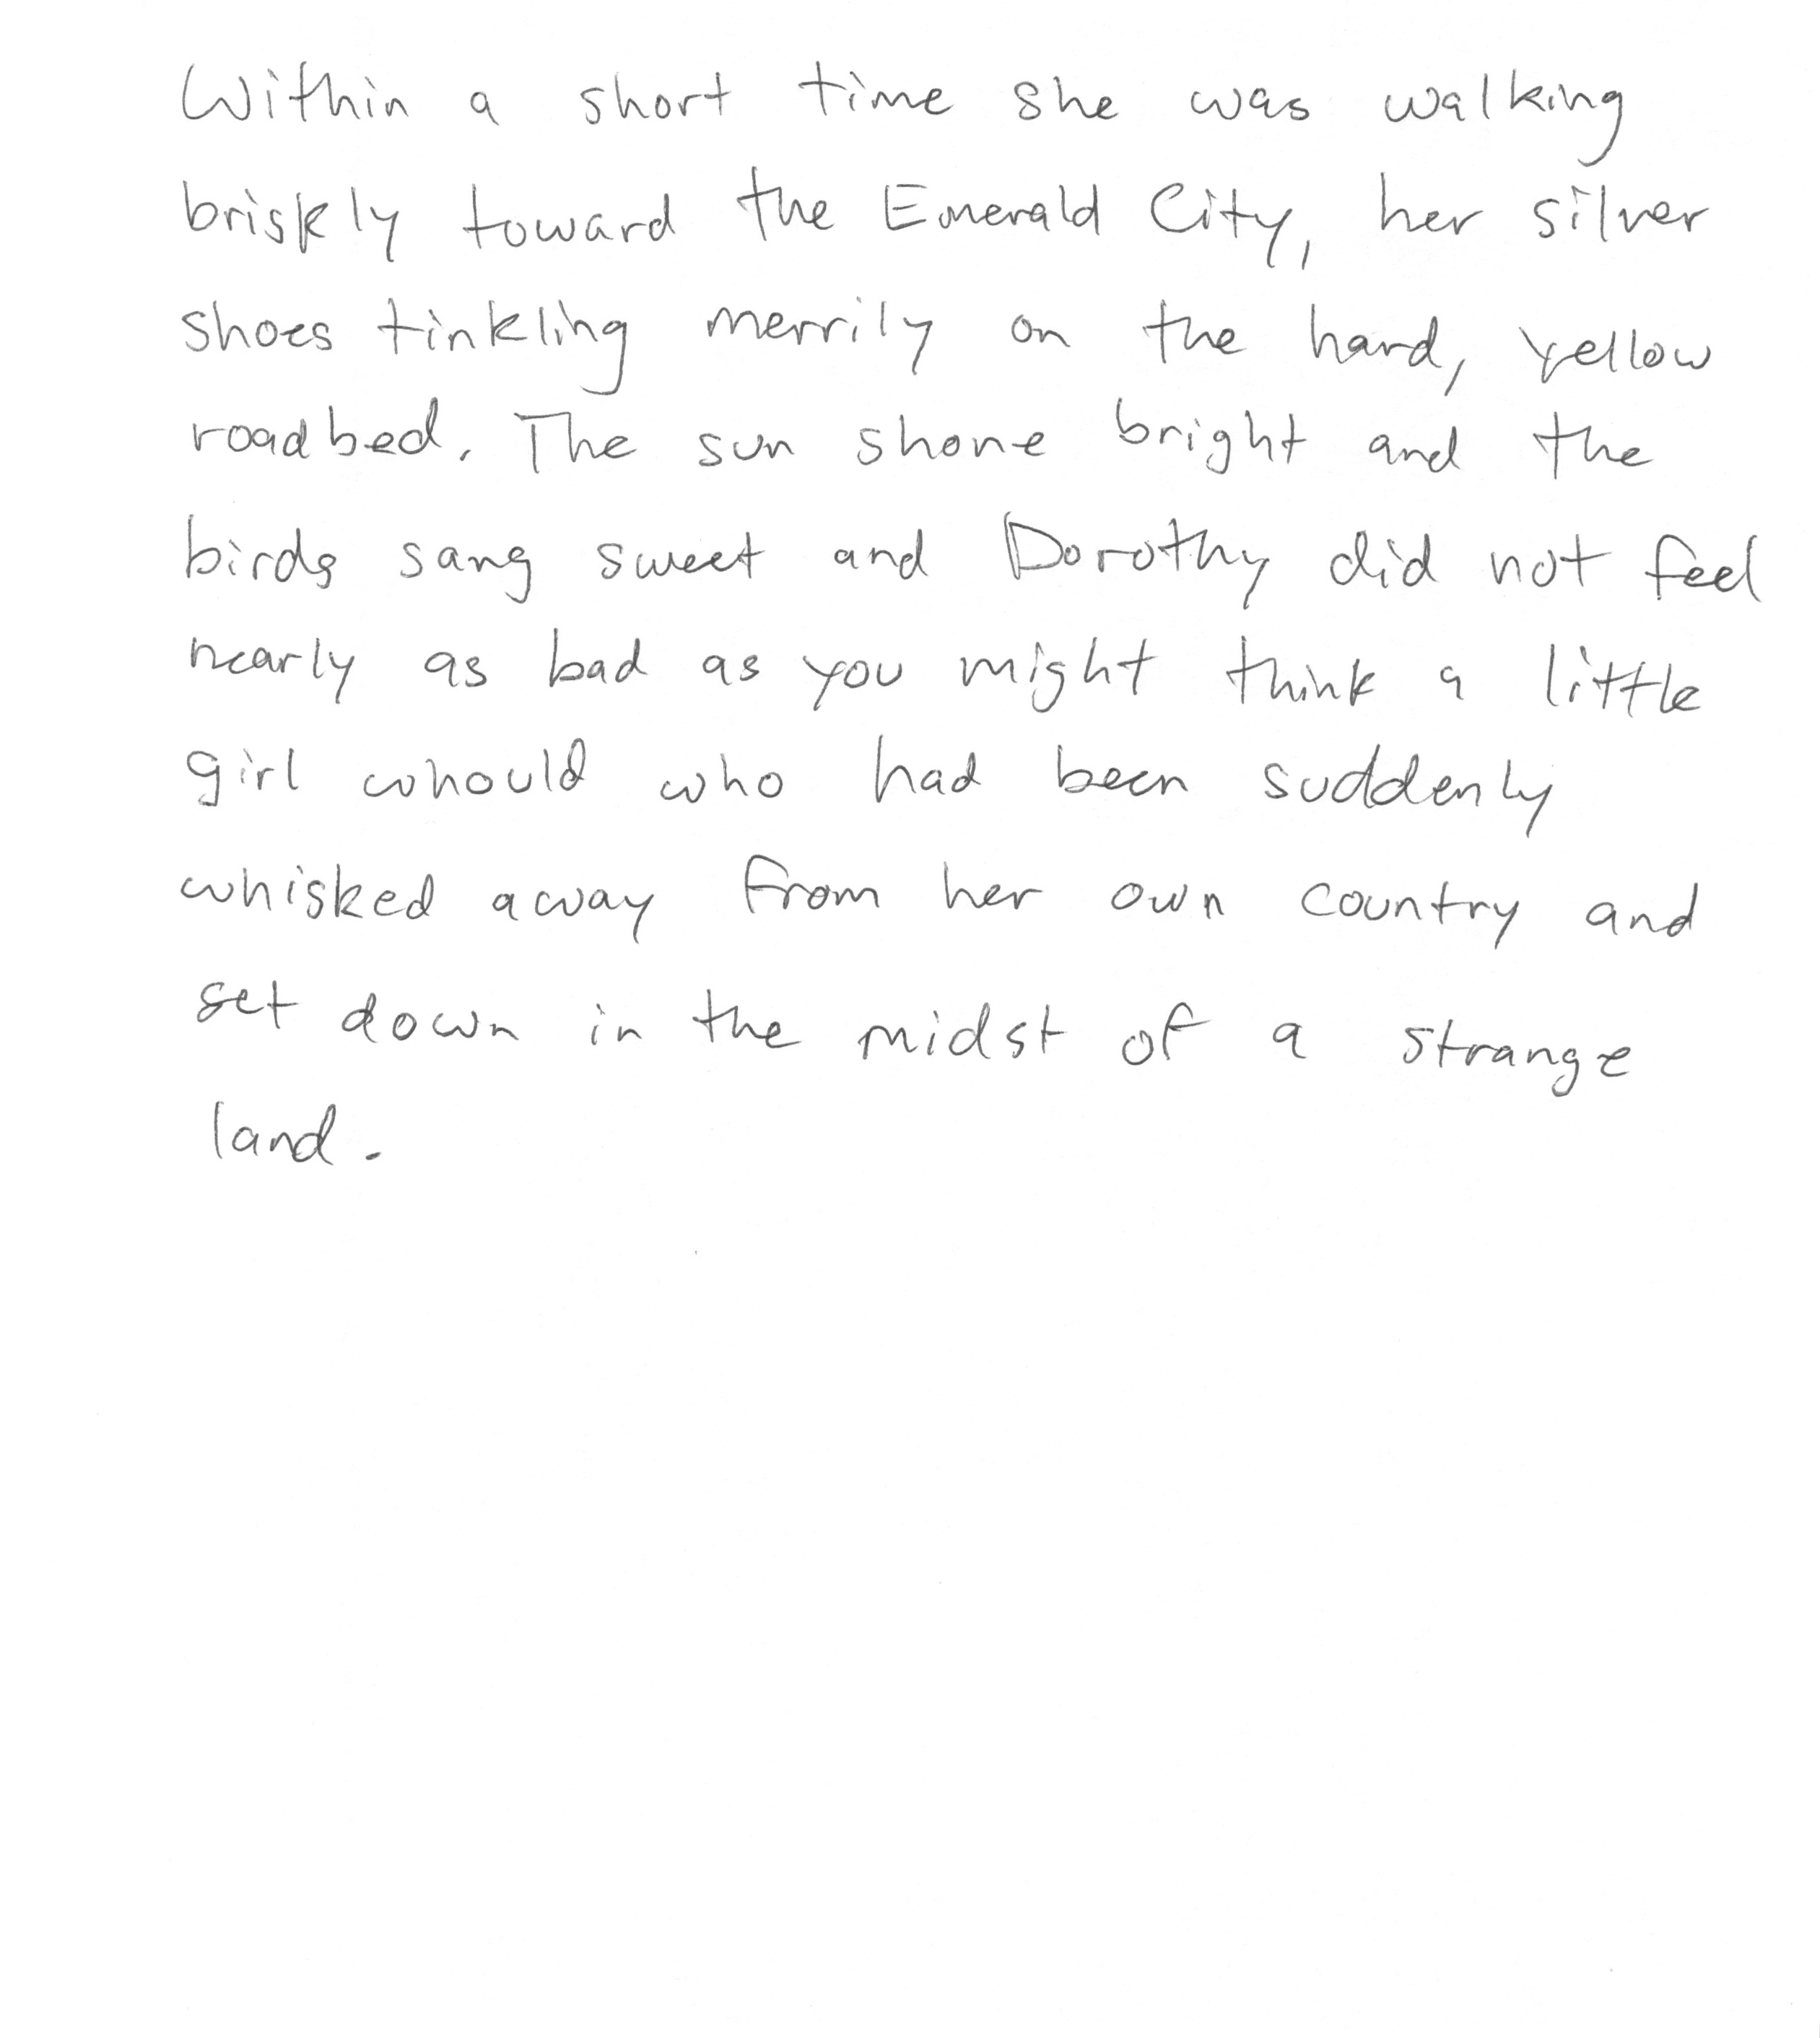 Within a short time she was walking
briskly toward the Emerald City, her silver
shoes tinkling merrily on the hard, yellow
roadbed. The sun shone bright and the
birds sang sweet and Dorothy did not feel
nearly as bad as you might think a little
girl whould who had been suddenly
whisked away from her own country and
set down in the midst of a strange
land.